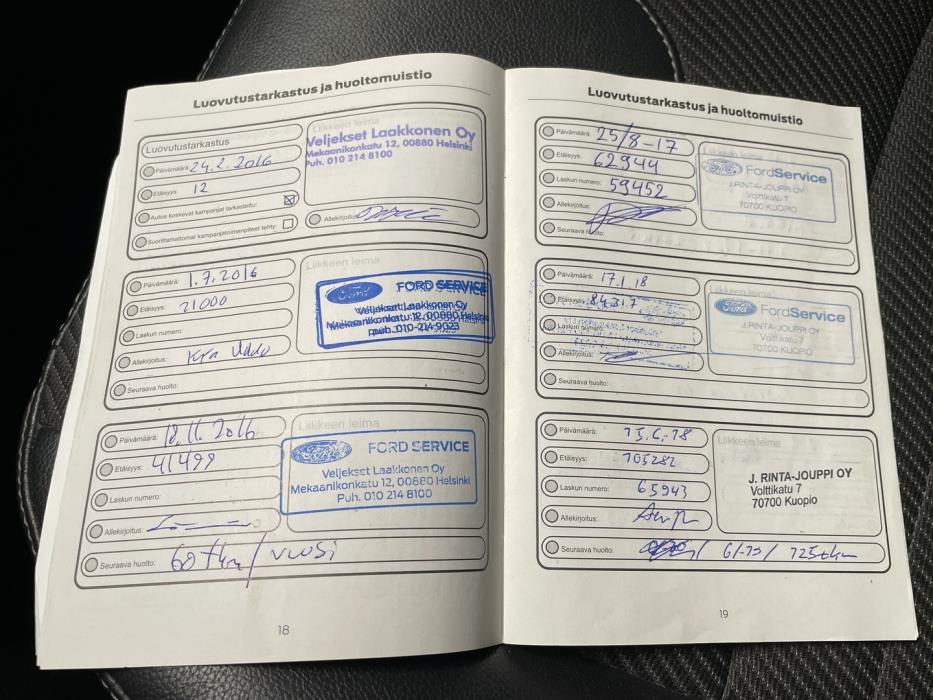 Luovutustarkastus ja huoltomuistio
Luovutustarkastus
Päivämäärä: 24.2.2016
Etäisyys: 12
Autoa koskevat kampanjat tarkastettu:
Suorittamattomat kampanjatoimenpiteet tehty:
Liikkeen leima
Veljekset Laakkonen Oy
Mekaanikonkatu 12, 00880 Helsinki
Puh. 010 214 8100
Allekirjoitus:
Päivämäärä: 1.7.2016
Etäisyys: 21000
Laskun numero:
Allekirjoitus:
Seuraava huolto:
Liikkeen leima
Ford FORD SERVICE
Veljekset Laakkonen Oy
Mekaanikonkatu 12, 00880 Helsinki
puh. 010-214 9023
Päivämäärä: 18.11.2016
Etäisyys: 41499
Laskun numero:
Allekirjoitus:
Seuraava huolto: 60 tkm / vuosi
Liikkeen leima
Ford FORD SERVICE
Veljekset Laakkonen Oy
Mekaanikonkatu 12, 00880 Helsinki
Puh. 010 214 8100
18
Luovutustarkastus ja huoltomuistio
Päivämäärä: 25/8-17
Etäisyys: 62944
Laskun numero: 59452
Allekirjoitus:
Seuraava huolto:
Liikkeen leima
Ford FordService
J.RINTA-JOUPPI OY
Volttikatu 7
70700 KUOPIO
Päivämäärä: 17.1.18
Etäisyys: 84317
Laskun numero:
Allekirjoitus:
Seuraava huolto:
Liikkeen leima
Ford FordService
J.RINTA-JOUPPI OY
Volttikatu 7
70700 KUOPIO
Päivämäärä: 15.6.-18
Etäisyys: 105282
Laskun numero: 65943
Allekirjoitus:
Seuraava huolto: / 6/-19 / 125tkm
Liikkeen leima
J. RINTA-JOUPPI OY
Volttikatu 7
70700 Kuopio
19